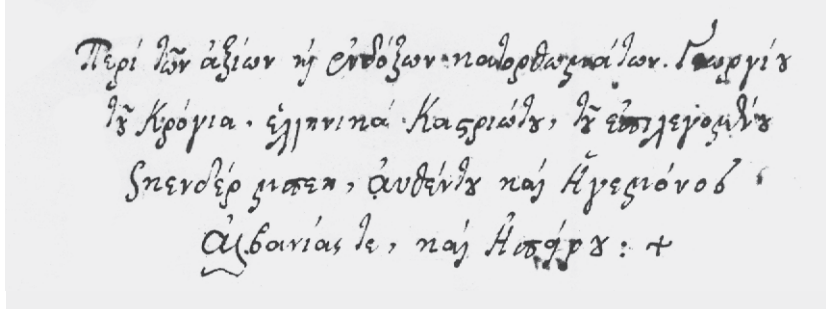 Περί τῶν ἀξίων κὶ ἐνδόξων κατορθωμάτων. Γεωργίου
τοῦ Κρόγια. ἑλληνικά Καστριώτου, τοῦ ἐπιλεγομένου
Σκενδέρ μπεη, ἀυθέντου καὶ Ἡγεμόνος
Ἀλβανίας τε, καὶ Ἠπείρου: +